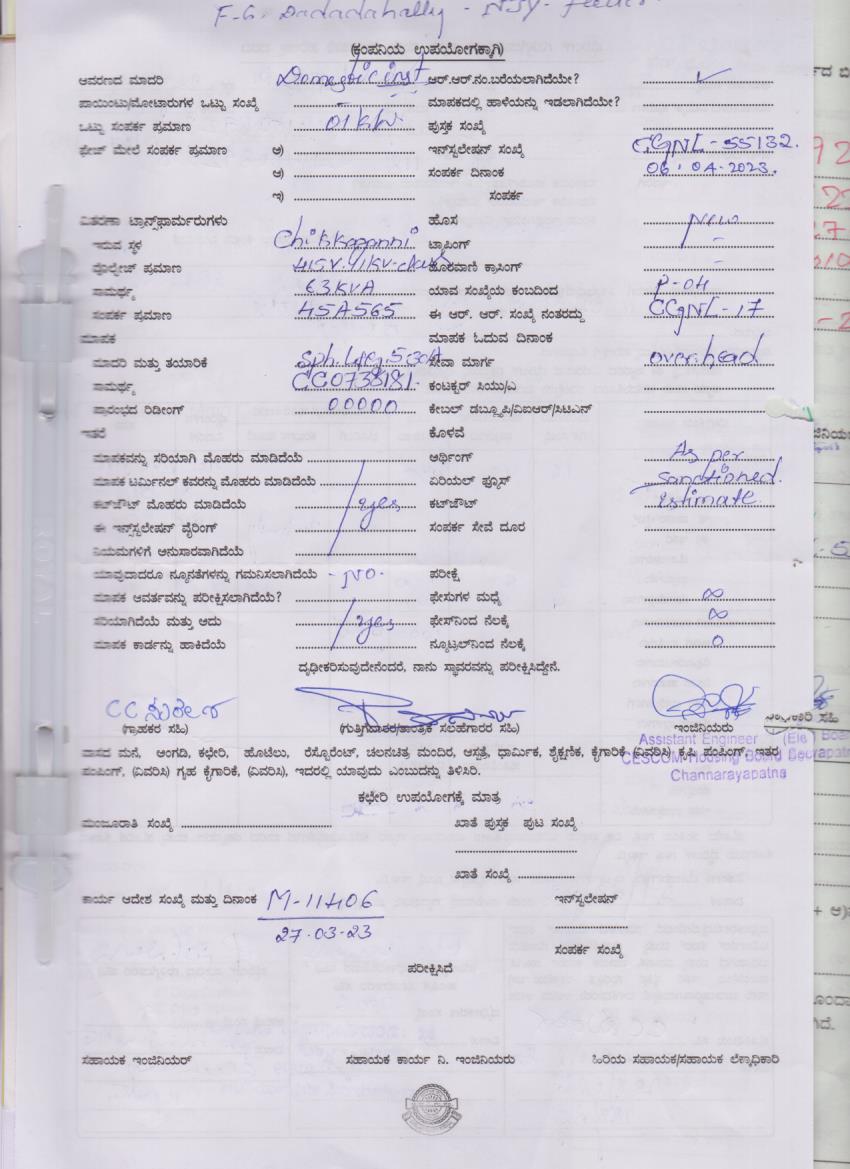 F-6. Dadadahally - NJY-
(ಕಂಪನಿಯ ಉಪಯೋಗಕ್ಕಾಗಿ)
ಆವರಣದ ಮಾದರಿ Domestic inst. ಆರ್.ಆರ್.ನಂ.ಬರೆಯಲಾಗಿದೆಯೇ? ✓
ಪಾಯಿಂಟು/ಮೋಟಾರುಗಳ ಒಟ್ಟು ಸಂಖ್ಯೆ - ಮಾಪಕದಲ್ಲಿ ಹಾಳೆಯನ್ನು ಇಡಲಾಗಿದೆಯೇ?
ಒಟ್ಟು ಸಂಪರ್ಕ ಪ್ರಮಾಣ 01 KW. ಪುಸ್ತಕ ಸಂಖ್ಯೆ
ಫೇಜ್ ಮೇಲೆ ಸಂಪರ್ಕ ಪ್ರಮಾಣ ಅ) ಇನ್‌ಸ್ಟಲೇಷನ್ ಸಂಖ್ಯೆ CGNL-55132.
ಆ) ಸಂಪರ್ಕ ದಿನಾಂಕ 06.04-2023.
ಇ) ಸಂಪರ್ಕ
ವಿತರಣಾ ಟ್ರಾನ್ಸ್‌ಫಾರ್ಮರುಗಳು ಹೊಸ New
ಇರುವ ಸ್ಥಳ Chikkaganni ಟ್ಯಾಪಿಂಗ್ -
ವೋಲ್ಟೇಜ್ ಪ್ರಮಾಣ 415V. ದೂರವಾಣಿ ಕ್ರಾಸಿಂಗ್ -
ಸಾಮರ್ಥ್ಯ 63KVA ಯಾವ ಸಂಖ್ಯೆಯ ಕಂಬದಿಂದ P-04
ಸಂಪರ್ಕ ಪ್ರಮಾಣ 45A565 ಈ ಆರ್. ಆರ್. ಸಂಖ್ಯೆ ನಂತರದ್ದು CGNL-17
ಮಾಪಕ ಮಾಪಕ ಓದುವ ದಿನಾಂಕ
ಮಾದರಿ ಮತ್ತು ತಯಾರಿಕೆ ಸೇವಾ ಮಾರ್ಗ over head
ಸಾಮರ್ಥ್ಯ CC0738181. ಕಂಟಕ್ಟರ್ ಸಿಯು/ಎ
ಪ್ರಾರಂಭದ ರಿಡೀಂಗ್ 00000 ಕೇಬಲ್ ಡಬ್ಲ್ಯೂಪಿ/ವಿಐಆರ್/ಸಿಟಿಎನ್
ಇತರೆ ಕೊಳವೆ
ಮಾಪಕವನ್ನು ಸರಿಯಾಗಿ ಮೊಹರು ಮಾಡಿದೆಯೆ ಆರ್ಥಿಂಗ್ As per
ಮಾಪಕ ಟರ್ಮಿನಲ್ ಕವರನ್ನು ಮೊಹರು ಮಾಡಿದೆಯೆ ಏರಿಯಲ್ ಫ್ಯೂಸ್ sanctioned.
ಕಟ್‌ಔಟ್ ಮೊಹರು ಮಾಡಿದೆಯೆ yes ಕಟ್‌ಔಟ್ Estimate.
ಈ ಇನ್‌ಸ್ಟಲೇಷನ್ ವೈರಿಂಗ್ ಸಂಪರ್ಕ ಸೇವೆ ದೂರ
ನಿಯಮಗಳಿಗೆ ಅನುಸಾರವಾಗಿದೆಯೆ
ಯಾವುದಾದರೂ ನ್ಯೂನತೆಗಳನ್ನು ಗಮನಿಸಲಾಗಿದೆಯೆ - NO - ಪರೀಕ್ಷೆ
ಮಾಪಕ ಆವರ್ತವನ್ನು ಪರೀಕ್ಷಿಸಲಾಗಿದೆಯೆ? ಫೇಸುಗಳ ಮಧ್ಯೆ ∞
ಸರಿಯಾಗಿದೆಯೆ ಮತ್ತು ಅದು yes ಫೇಸ್‌ನಿಂದ ನೆಲಕ್ಕೆ ∞
ಮಾಪಕ ಕಾರ್ಡನ್ನು ಹಾಕಿದೆಯೆ ನ್ಯೂಟ್ರಲ್‌ನಿಂದ ನೆಲಕ್ಕೆ 0
ದೃಢೀಕರಿಸುವುದೇನೆಂದರೆ, ನಾನು ಸ್ಥಾವರವನ್ನು ಪರೀಕ್ಷಿಸಿದ್ದೇನೆ.
CC ಸುರೇಶ
(ಗ್ರಾಹಕರ ಸಹಿ) (ಗುತ್ತಿಗೆದಾರರ/ತಾಂತ್ರಿಕ ಸಲಹೆಗಾರರ ಸಹಿ) ಇಂಜಿನಿಯರು
Assistant Engineer (Ele)
CESCOM Housing Board
Channarayapatna
ವಾಸದ ಮನೆ, ಅಂಗಡಿ, ಕಛೇರಿ, ಹೊಟೆಲು, ರೆಸ್ಟೊರೆಂಟ್, ಚಲನಚಿತ್ರ ಮಂದಿರ, ಆಸ್ಪತ್ರೆ, ಧಾರ್ಮಿಕ, ಶೈಕ್ಷಣಿಕ, ಕೈಗಾರಿಕೆ (ವಿವರಿಸಿ) ಕೃಷಿ ಪಂಪಿಂಗ್, ಇತರ
ಪಂಪಿಂಗ್, (ವಿವರಿಸಿ) ಗೃಹ ಕೈಗಾರಿಕೆ, (ವಿವರಿಸಿ), ಇದರಲ್ಲಿ ಯಾವುದು ಎಂಬುದನ್ನು ತಿಳಿಸಿರಿ.
ಕಛೇರಿ ಉಪಯೋಗಕ್ಕೆ ಮಾತ್ರ
ಮಂಜೂರಾತಿ ಸಂಖ್ಯೆ ಖಾತೆ ಪುಸ್ತಕ ಪುಟ ಸಂಖ್ಯೆ
ಖಾತೆ ಸಂಖ್ಯೆ
ಕಾರ್ಯ ಆದೇಶ ಸಂಖ್ಯೆ ಮತ್ತು ದಿನಾಂಕ M-11406 ಇನ್‌ಸ್ಟಲೇಷನ್
27-03-23
ಸಂಪರ್ಕ ಸಂಖ್ಯೆ
ಪರೀಕ್ಷಿಸಿದೆ
ಸಹಾಯಕ ಇಂಜಿನಿಯರ್ ಸಹಾಯಕ ಕಾರ್ಯ ನಿ. ಇಂಜಿನಿಯರು ಹಿರಿಯ ಸಹಾಯಕ/ಸಹಾಯಕ ಲೆಕ್ಕಾಧಿಕಾರಿ